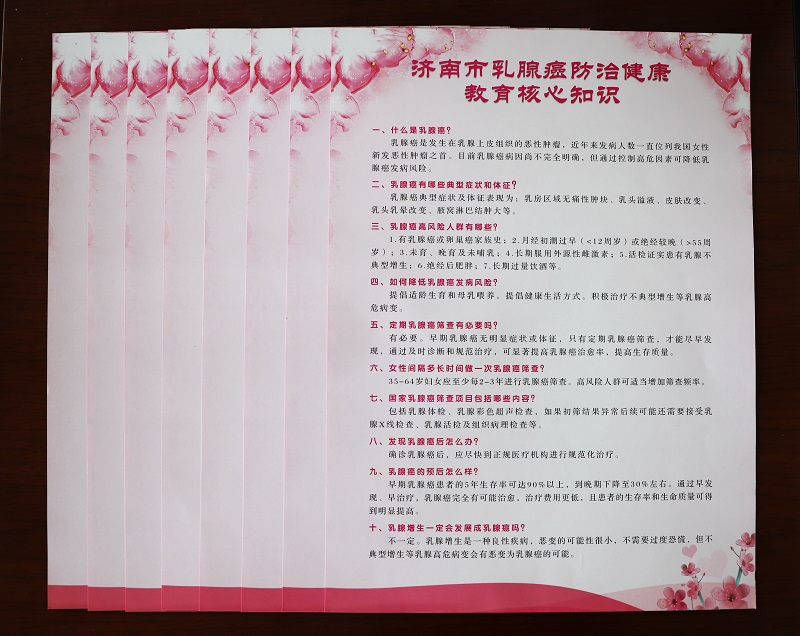 济南市乳腺癌防治健康
教育核心知识
一、什么是乳腺癌？
乳腺癌是发生在乳腺上皮组织的恶性肿瘤，近年来发病人数一直位列我国女性
新发恶性肿瘤之首。目前乳腺癌病因尚不完全明确，但通过控制高危因素可降低乳
腺癌发病风险。
二、乳腺癌有哪些典型症状和体征？
乳腺癌典型症状及体征表现为：乳房区域无痛性肿块、乳头溢液、皮肤改变、
乳头乳晕改变、腋窝淋巴结肿大等。
三、乳腺癌高风险人群有哪些？
1.有乳腺癌或卵巢癌家族史；2.月经初潮过早（<12周岁）或绝经较晚（>55周
岁）；3.未育、晚育及未哺乳；4.长期服用外源性雌激素；5.活检证实患有乳腺不
典型增生；6.绝经后肥胖；7.长期过量饮酒等。
四、如何降低乳腺癌发病风险？
提倡适龄生育和母乳喂养。提倡健康生活方式。积极治疗不典型增生等乳腺高
危病变。
五、定期乳腺癌筛查有必要吗？
有必要。早期乳腺癌无明显症状或体征，只有定期乳腺癌筛查，才能尽早发
现，通过及时诊断和规范治疗，可显著提高乳腺癌治愈率，提高生存质量。
六、女性间隔多长时间做一次乳腺癌筛查？
35-64岁妇女应至少每2-3年进行乳腺癌筛查。高风险人群可适当增加筛查频率。
七、国家乳腺癌筛查项目包括哪些内容？
包括乳腺体检、乳腺彩色超声检查，如果初筛结果异常后续可能还需要接受乳
腺X线检查、乳腺活检及组织病理检查等。
八、发现乳腺癌后怎么办？
确诊乳腺癌后，应尽快到正规医疗机构进行规范化治疗。
九、乳腺癌的预后怎么样？
早期乳腺癌患者的5年生存率可达90%以上，到晚期下降至30%左右。通过早发
现、早治疗，乳腺癌完全有可能治愈，治疗费用更低，且患者的生存率和生命质量可得
到明显提高。
十、乳腺增生一定会发展成乳腺癌吗？
不一定。乳腺增生是一种良性疾病，恶变的可能性很小，不需要过度恐慌，但不
典型增生等乳腺高危病变会有恶变为乳腺癌的可能。